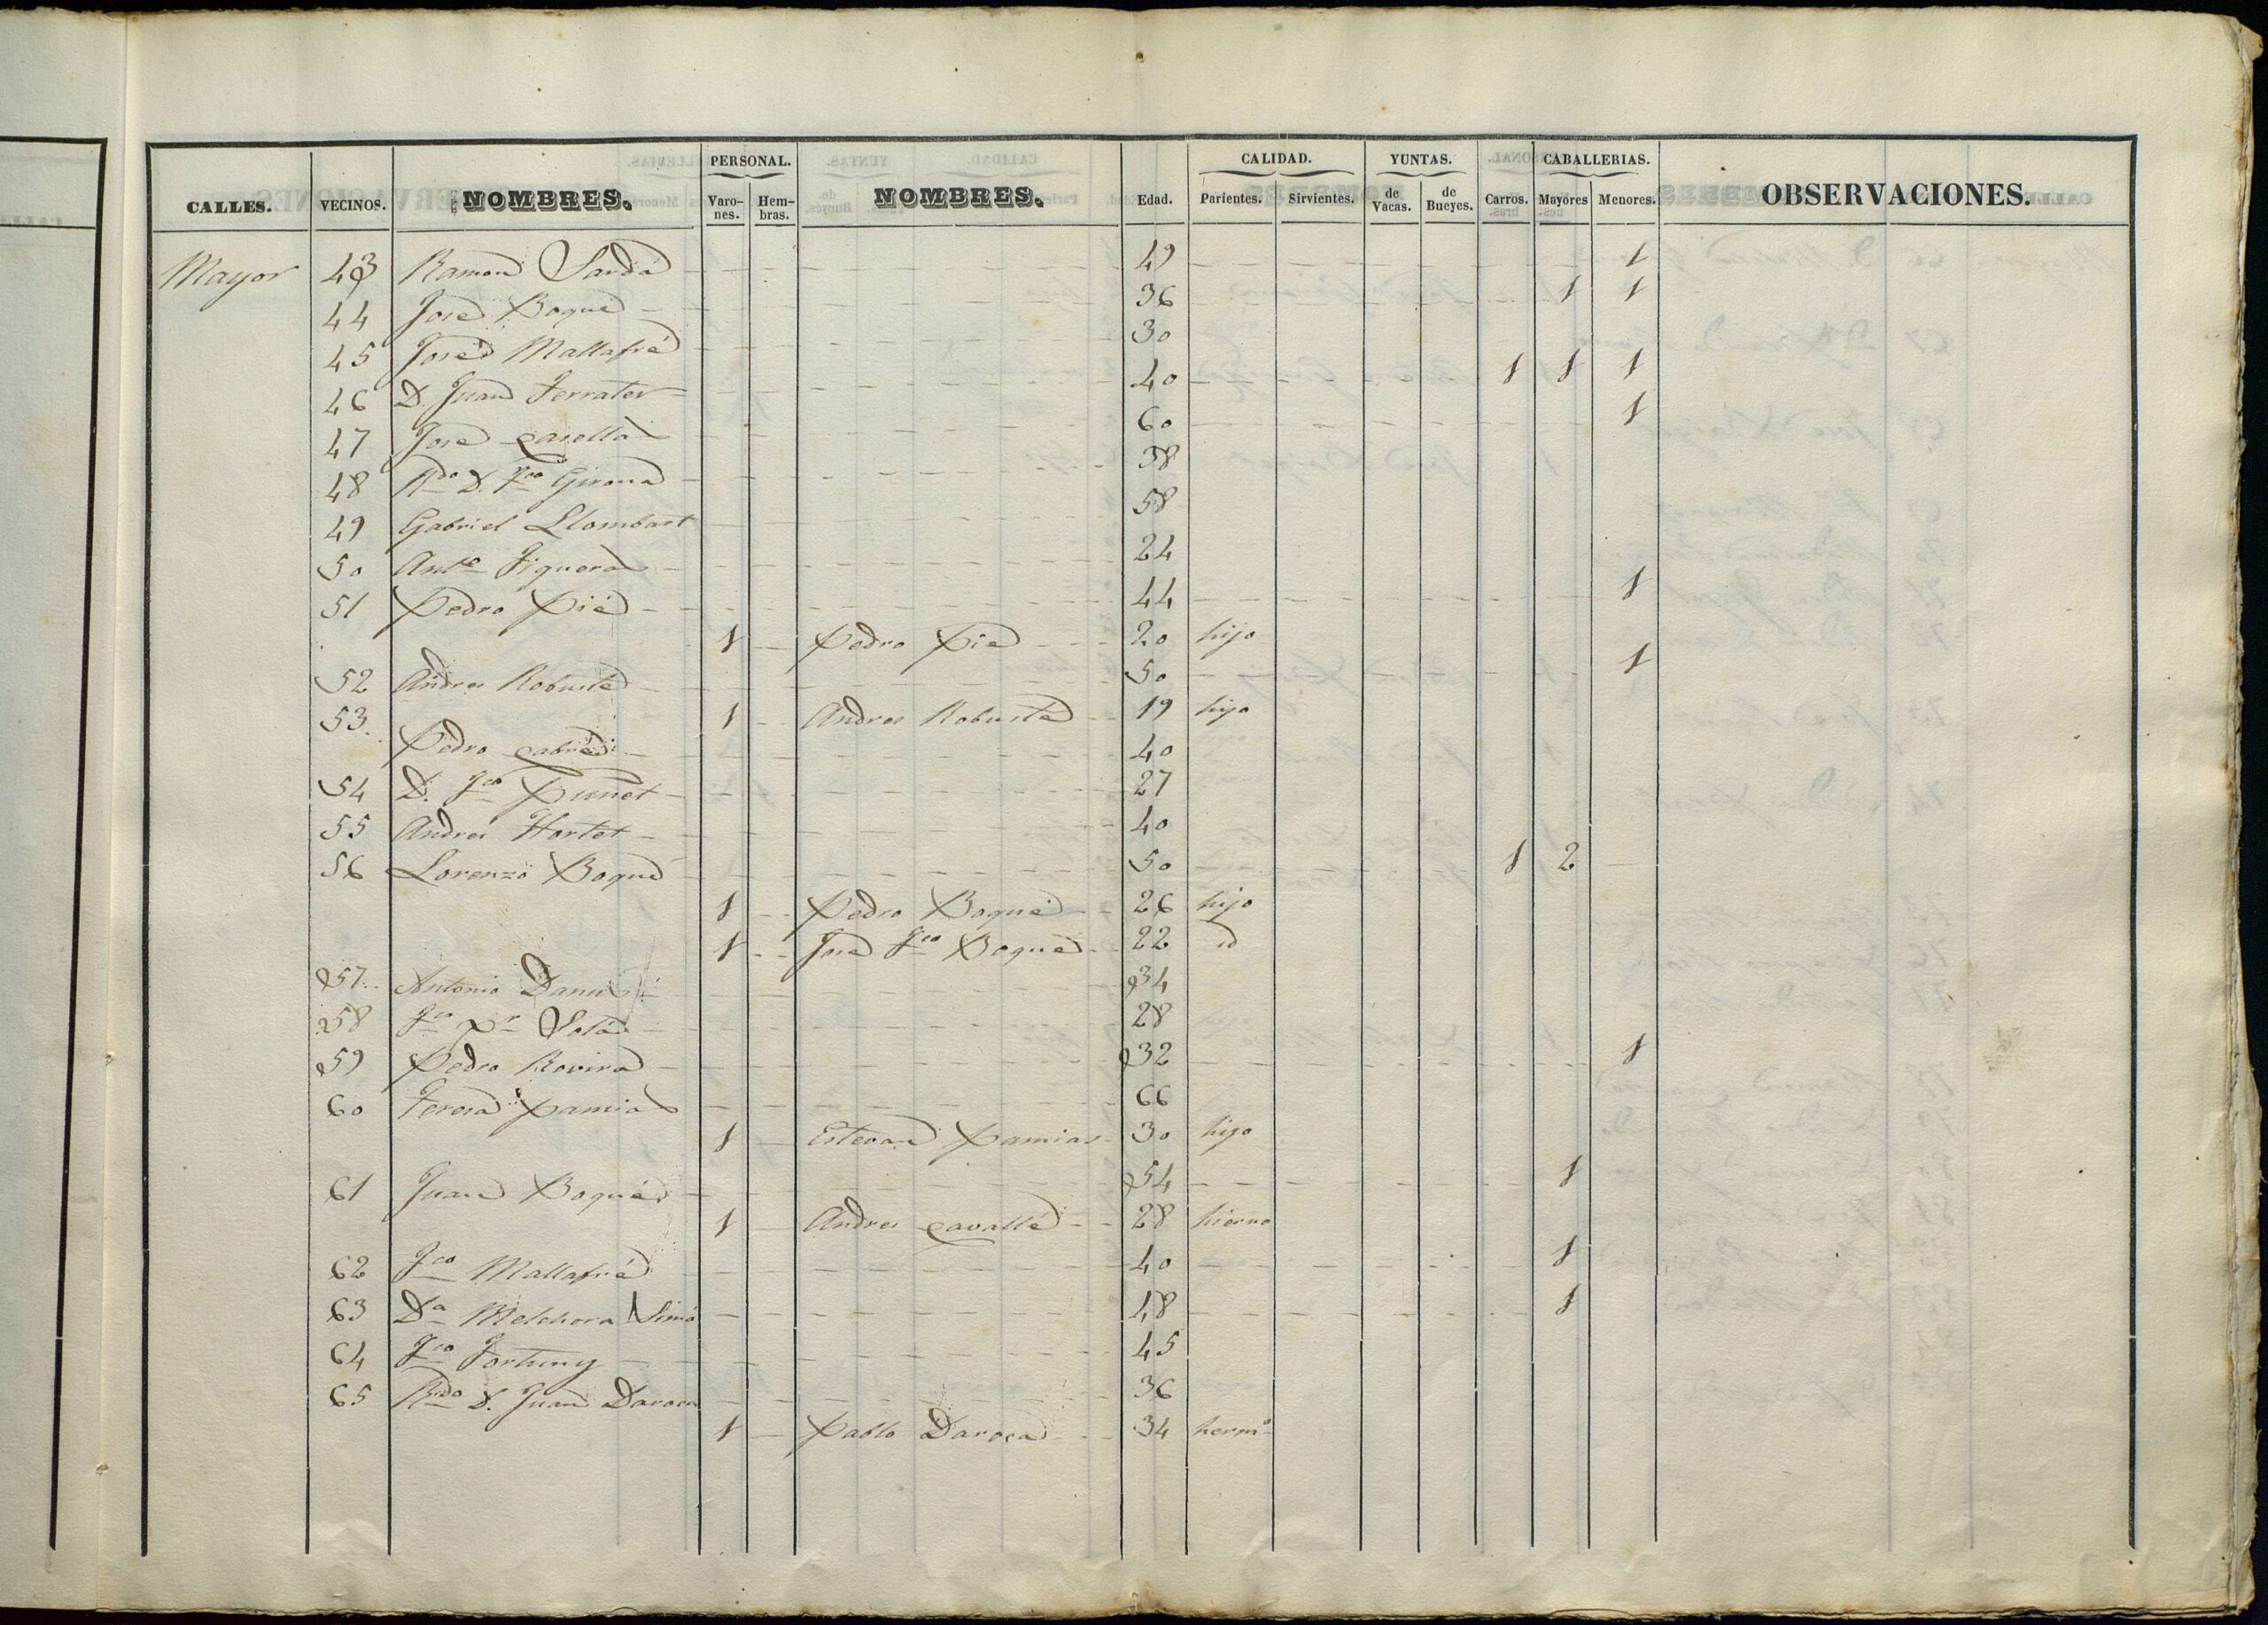 PERSONAL. CALIDAD. YUNTAS. CABALLERIAS.
CALLES. VECINOS. NOMBRES. Varones. Hembras. NOMBRES. Edad. Parientes. Sirvientes. de Vacas. de Bueyes. Carros. Mayores Menores. OBSERVACIONES.
Mayor 43 Ramon Sardá 49 1
44 José Boqué 36 1 1
45 José Mallafré 30
46 D. Juan Ferrater 40 1 1 1
47 José Casella 60 1
48 Rdo D. Fco Girona 38
49 Gabriel Llombart 58
50 Anto Figuera 24
51 Pedro Pié 44 1
1 Pedro Pié 20 hijo
52 Andres Robusté 50 1
1 Andres Robusté 19 hijo
53 Pedro Cabré 40
54 D. Fco Puñet 27
55 Andres Hortet 40
56 Lorenzo Boqué 50 1 2
1 Pedro Boqué 26 hijo
1 José Fco Boqué 22 id
57 Antonio 34
58 Fco Solá 28
59 Pedro Rovira 32 1
60 Teresa Pamias 66
1 Estevan Pamias 30 hijo
61 Juan Boqué 54 1
1 Andres Cavallé 28 hierno
62 Fco Mallafré 40 1
63 Da Melchora Simó 48 1
64 Fco Fortuny 45
65 Rdo D. Juan Daroca 36
1 Pablo Daroca 34 hermo